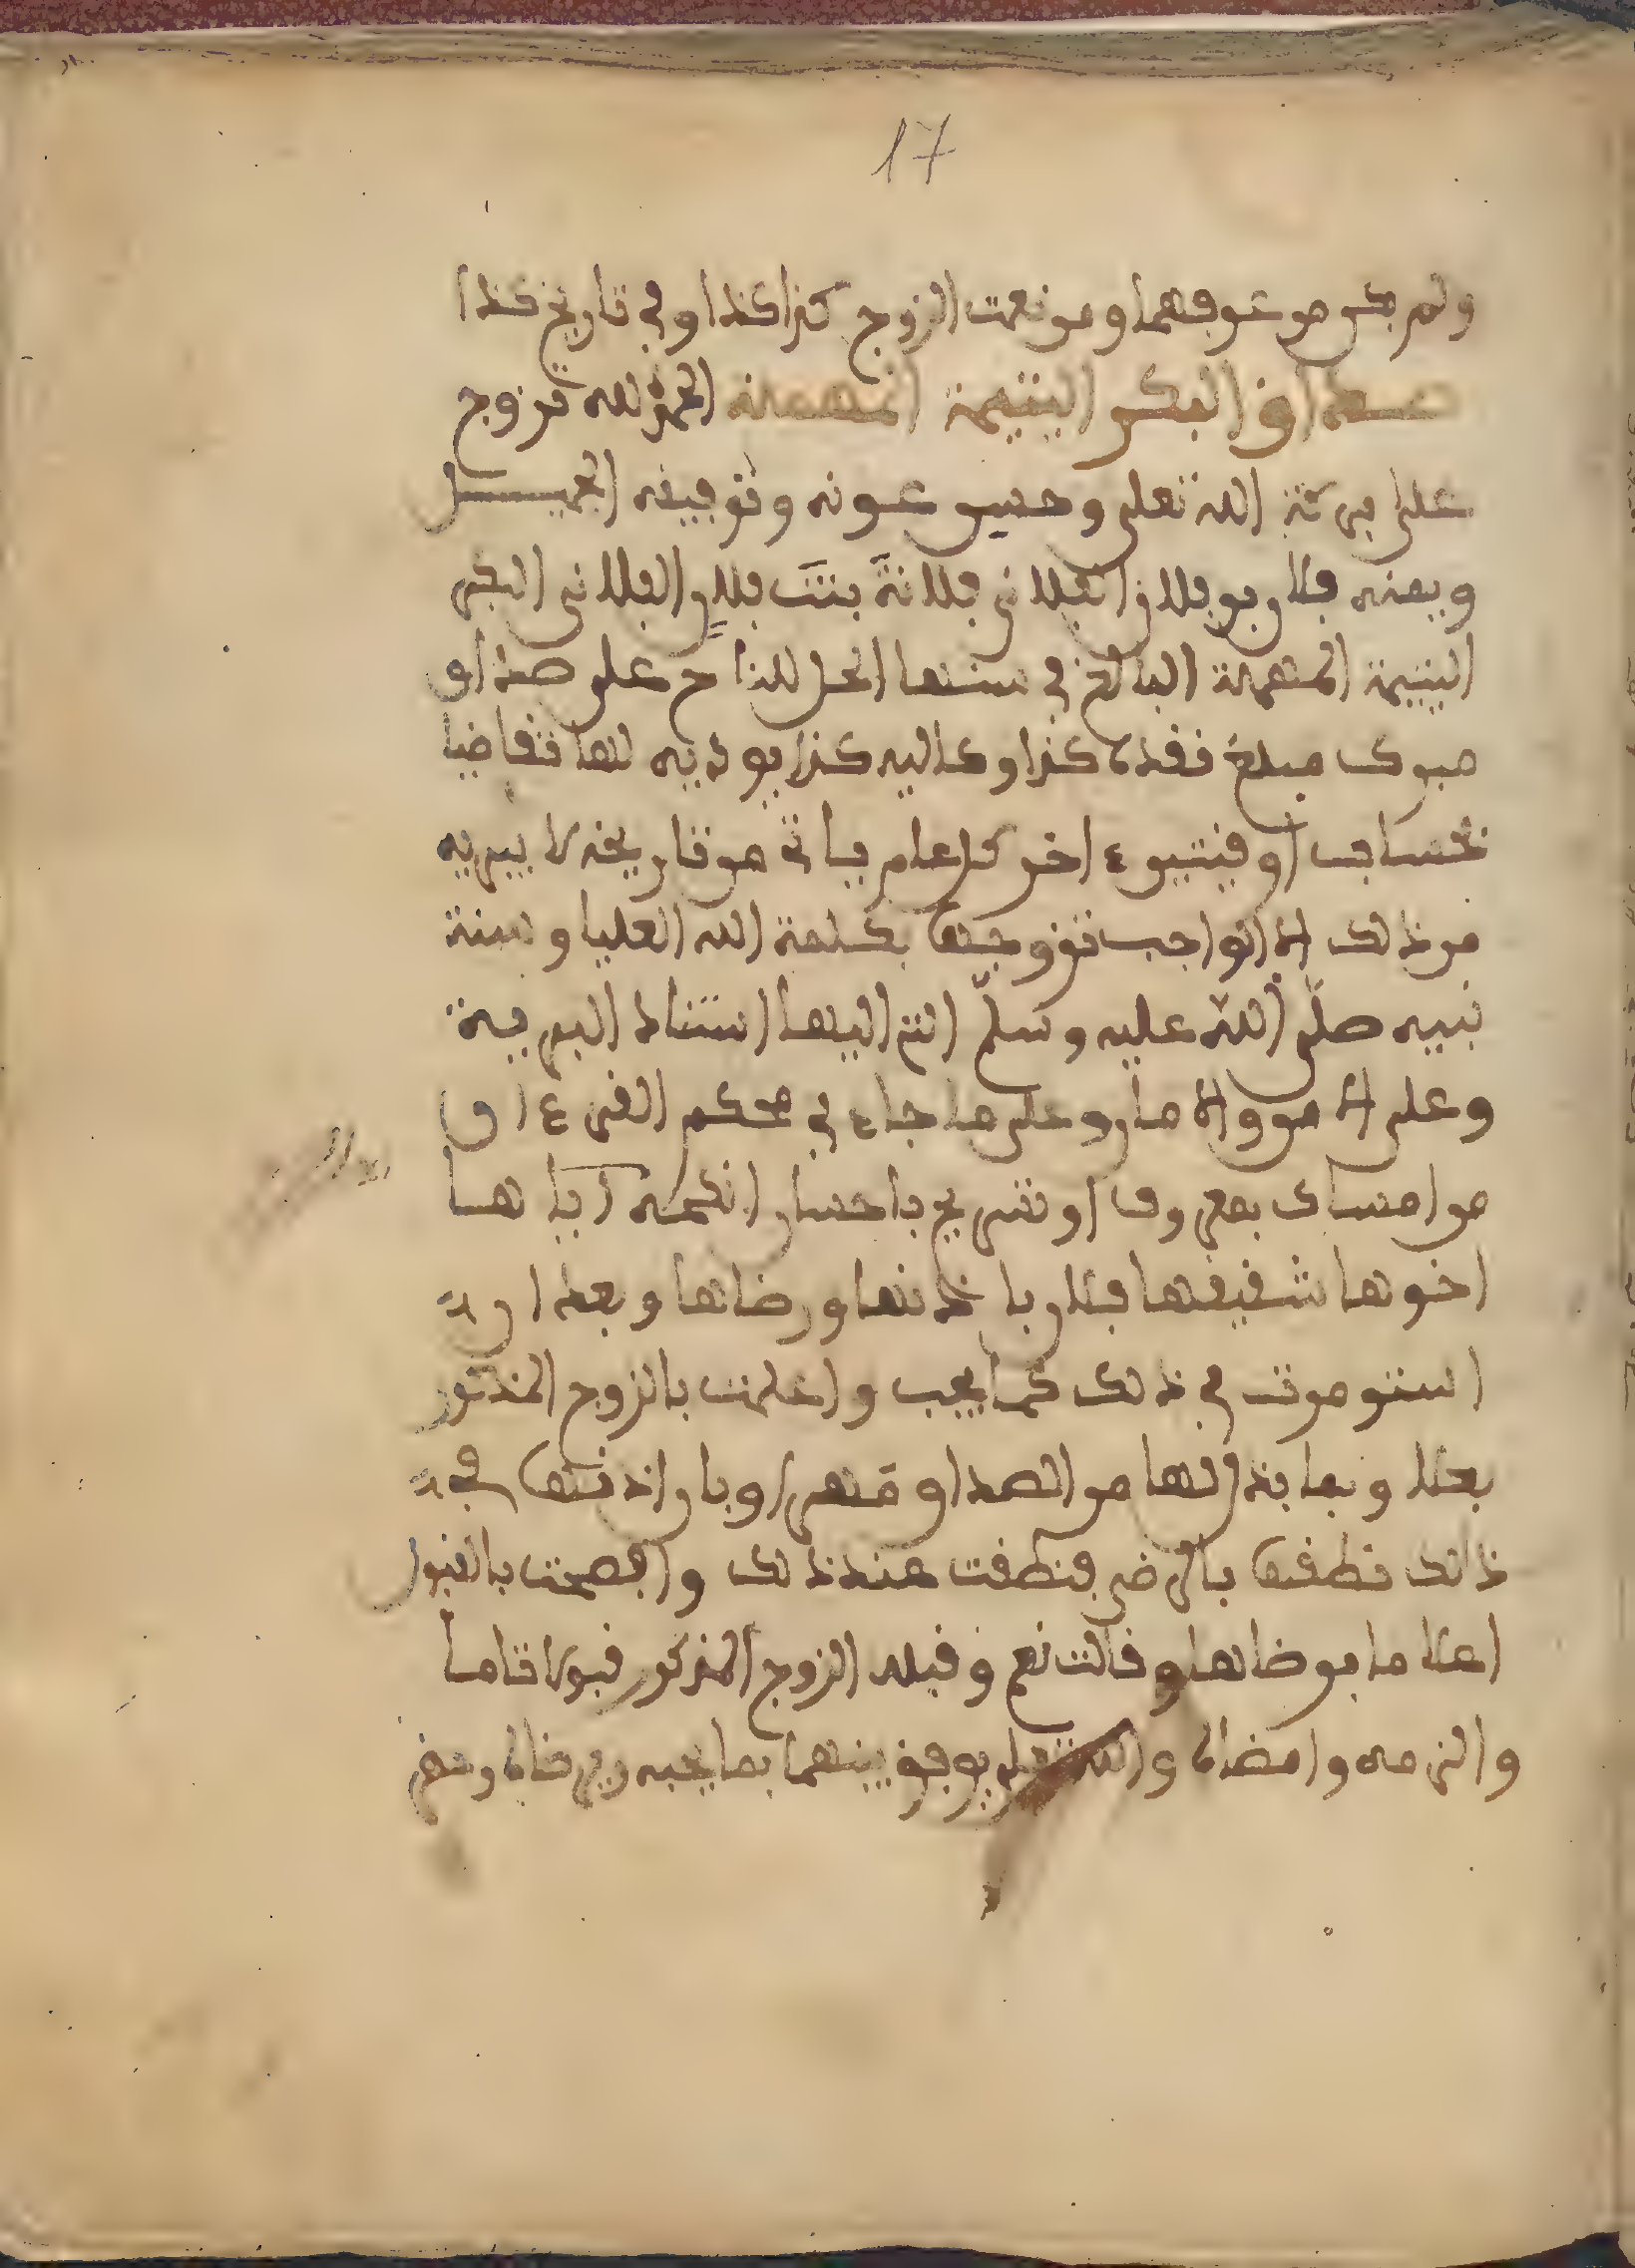 17
ولم يكن من عرفهما ومن نعت الزوج كذا كذا وفي تاريخ كذا
صداق البكر اليتيمة المهملة الحمد لله تزوج
على بركة الله تعلى وحسن عونه وتوفيقه الجميل
ويمنه فلان بن فلان الفلاني فلانة بنت فلان الفلاني البكر
اليتيمة المهملة البالغ في سنها الحل للنكاح على صداق
مبرك مبلغ نقده كذا وكاليه كذا يؤديه لها تقاضيا
بحساب اوقيتين ء اخر كل عام ياتي من تاريخه لا يبريه
من ذلك الا الواجب تزوجها بكلمة الله العليا وسنة
نبيه صلى الله عليه وسلم انتم اليها استناد البرية
وعلى الا من والا مان وعلى ما جاء في محكم القرءان
من امساك بمعروف او تسريح باحسان انكحه اياها
اخوها شقيقها فلان باذنها ورضاها وبعد ان
استومرت في ذلك كما يجب واعلمت بالزوج المذكور
بعلا وبما بذل لها من الصداق مهرا وبان اذنها في
ذلك نطقها بالرضى فنطقت عند ذلك وافصحت بالقبول
اعلاما برضاها وقالت نعم وقبله الزوج المذكور قبولا تاما
والتزمه وامضاه والله تعلى يوفق بينهما بما يحبه ويرضاه ومن